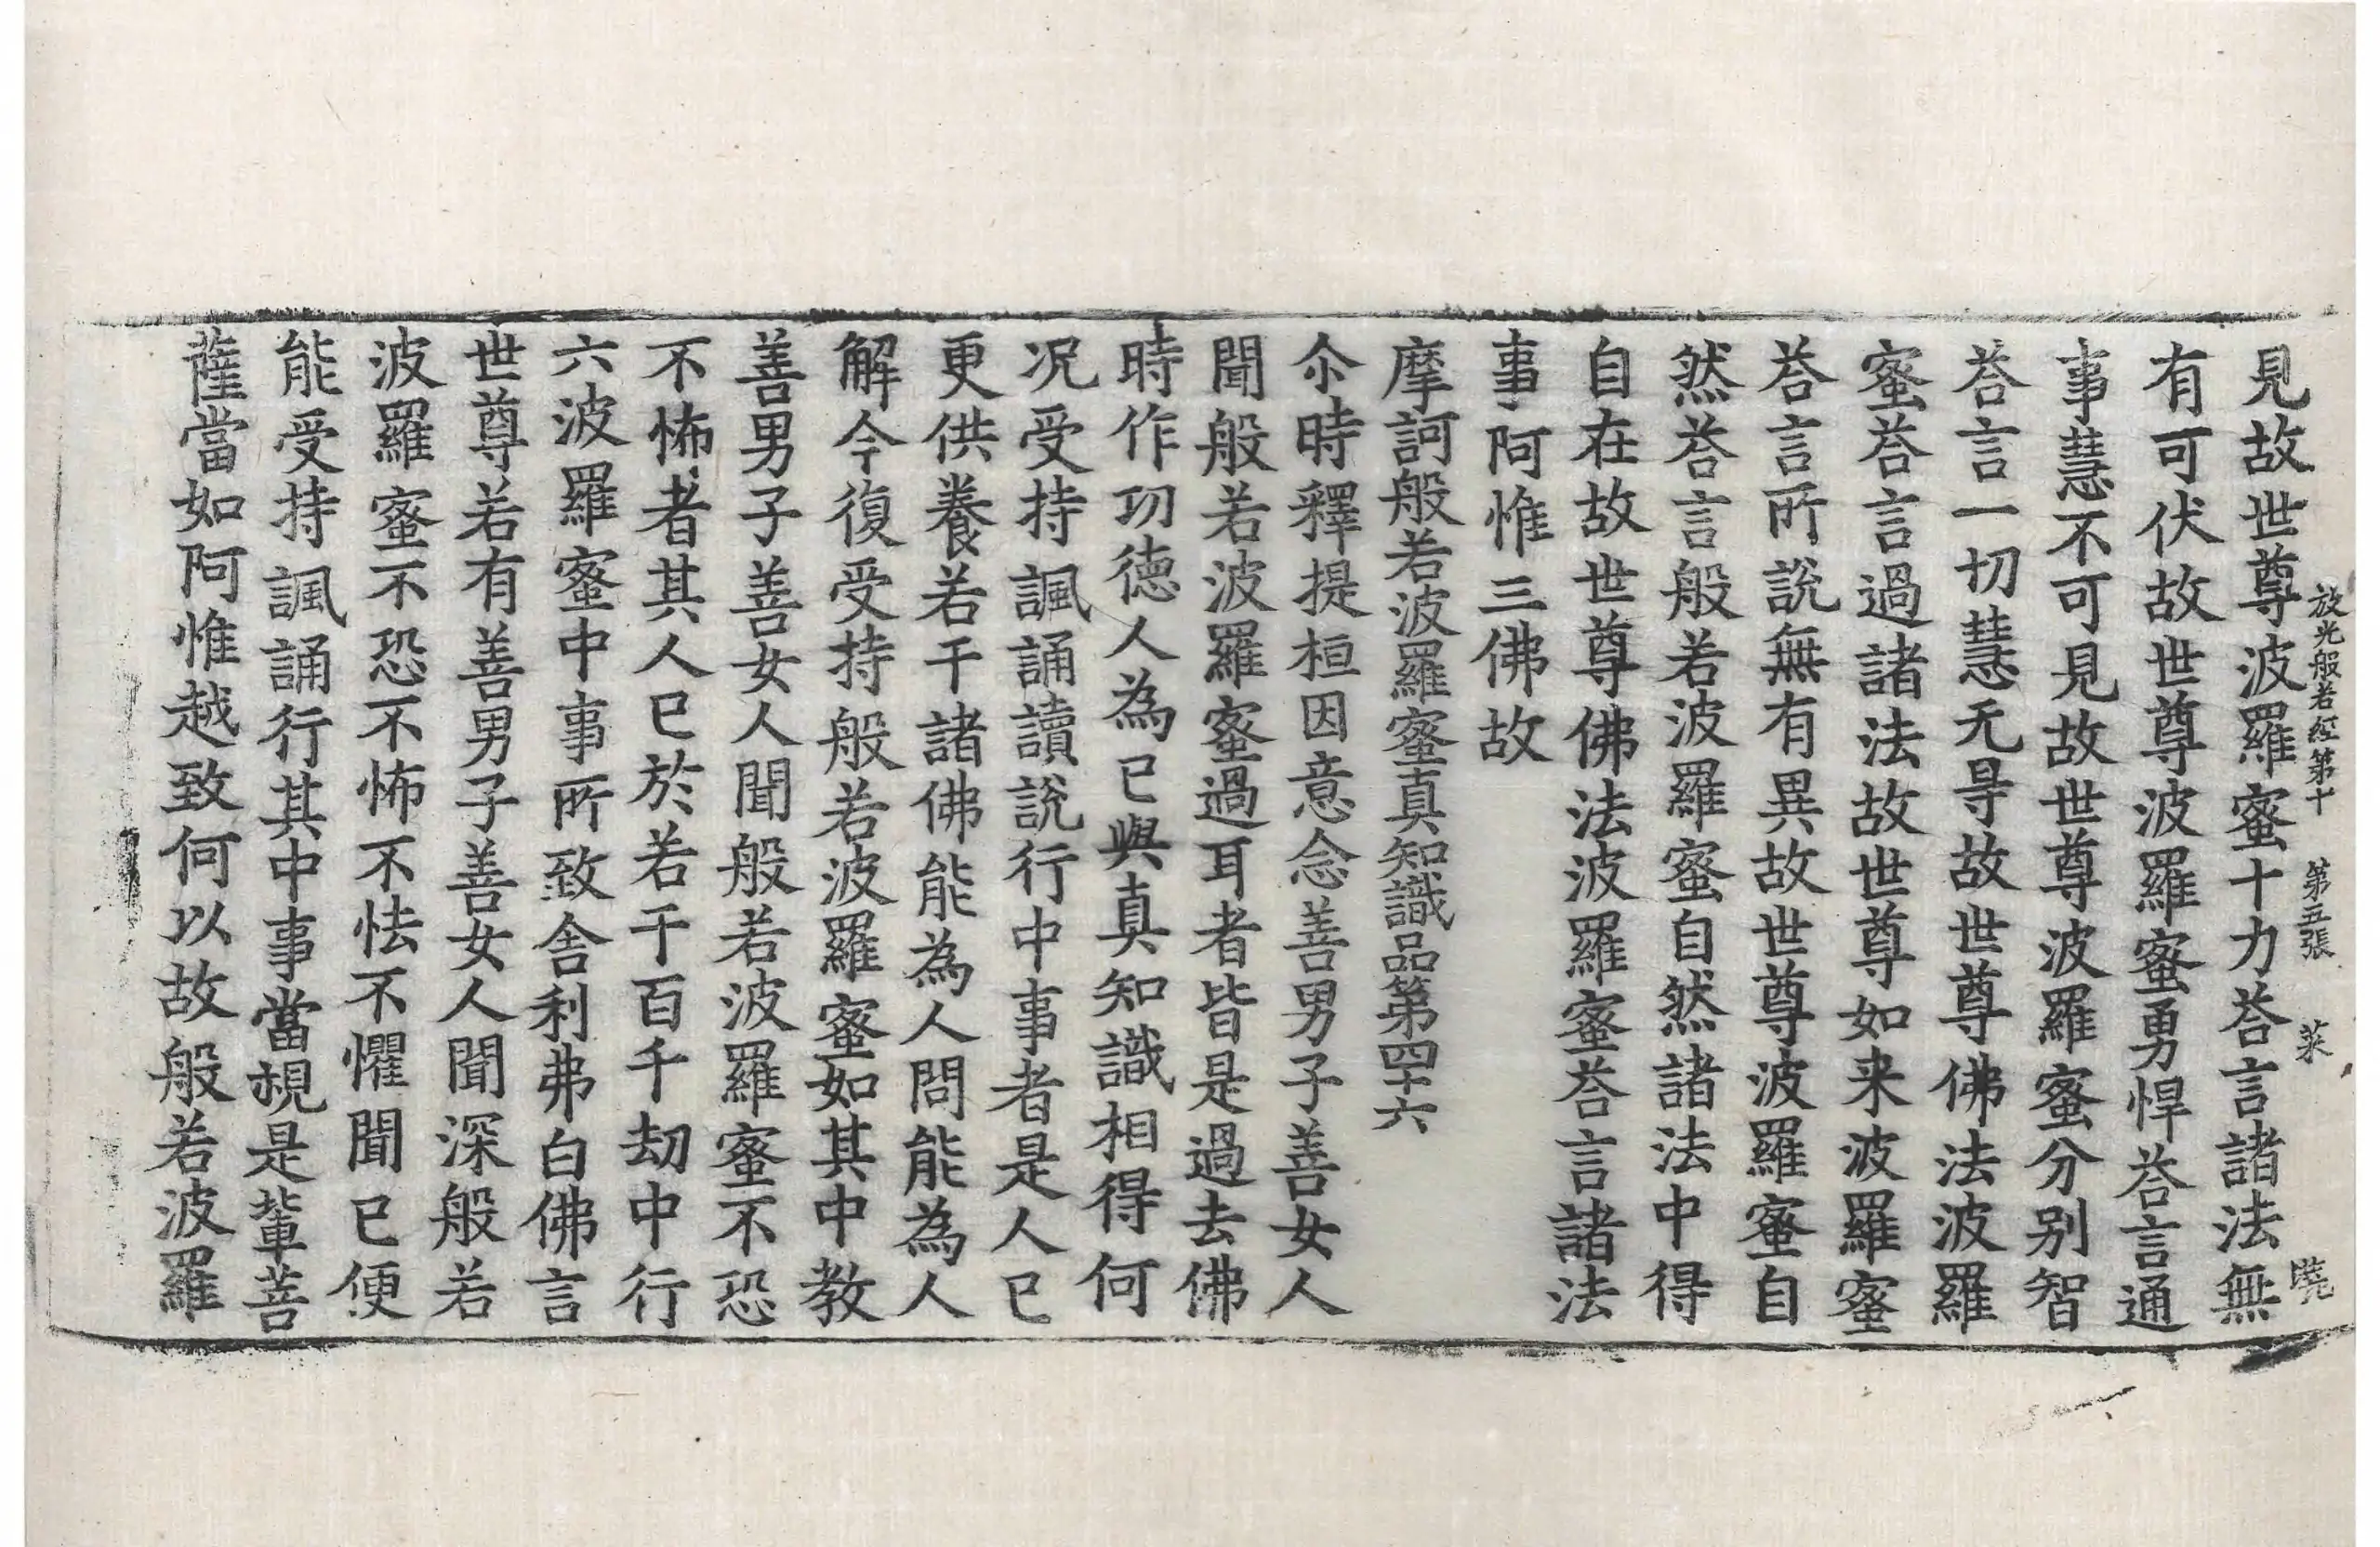 放光般若經第十 第五張 菜 曉
見故世尊波羅蜜十力荅言諸法無
有可伏故世尊波羅蜜勇悍荅言通
事慧不可見故世尊波羅蜜分别智
荅言一切慧无㝵故世尊佛法波羅
蜜荅言過諸法故世尊如来波羅蜜
荅言所說無有異故世尊波羅蜜自
然荅言般若波羅蜜自然諸法中得
自在故世尊佛法波羅蜜荅言諸法
事阿惟三佛故
摩訶般若波羅蜜真知識品第四十六
尒時釋提桓因意念善男子善女人
聞般若波羅蜜過耳者皆是過去佛
時作功德人為已與真知識相得何
况受持諷誦讀說行中事者是人已
更供養若干諸佛能為人問能為人
解今復受持般若波羅蜜如其中教
善男子善女人聞般若波羅蜜不恐
不怖者其人已於若干百千劫中行
六波羅蜜中事所致舎利弗白佛言
世尊若有善男子善女人聞深般若
波羅蜜不恐不怖不怯不懼聞已便
能受持諷誦行其中事當視是輩菩
薩當如阿惟越致何以故般若波羅